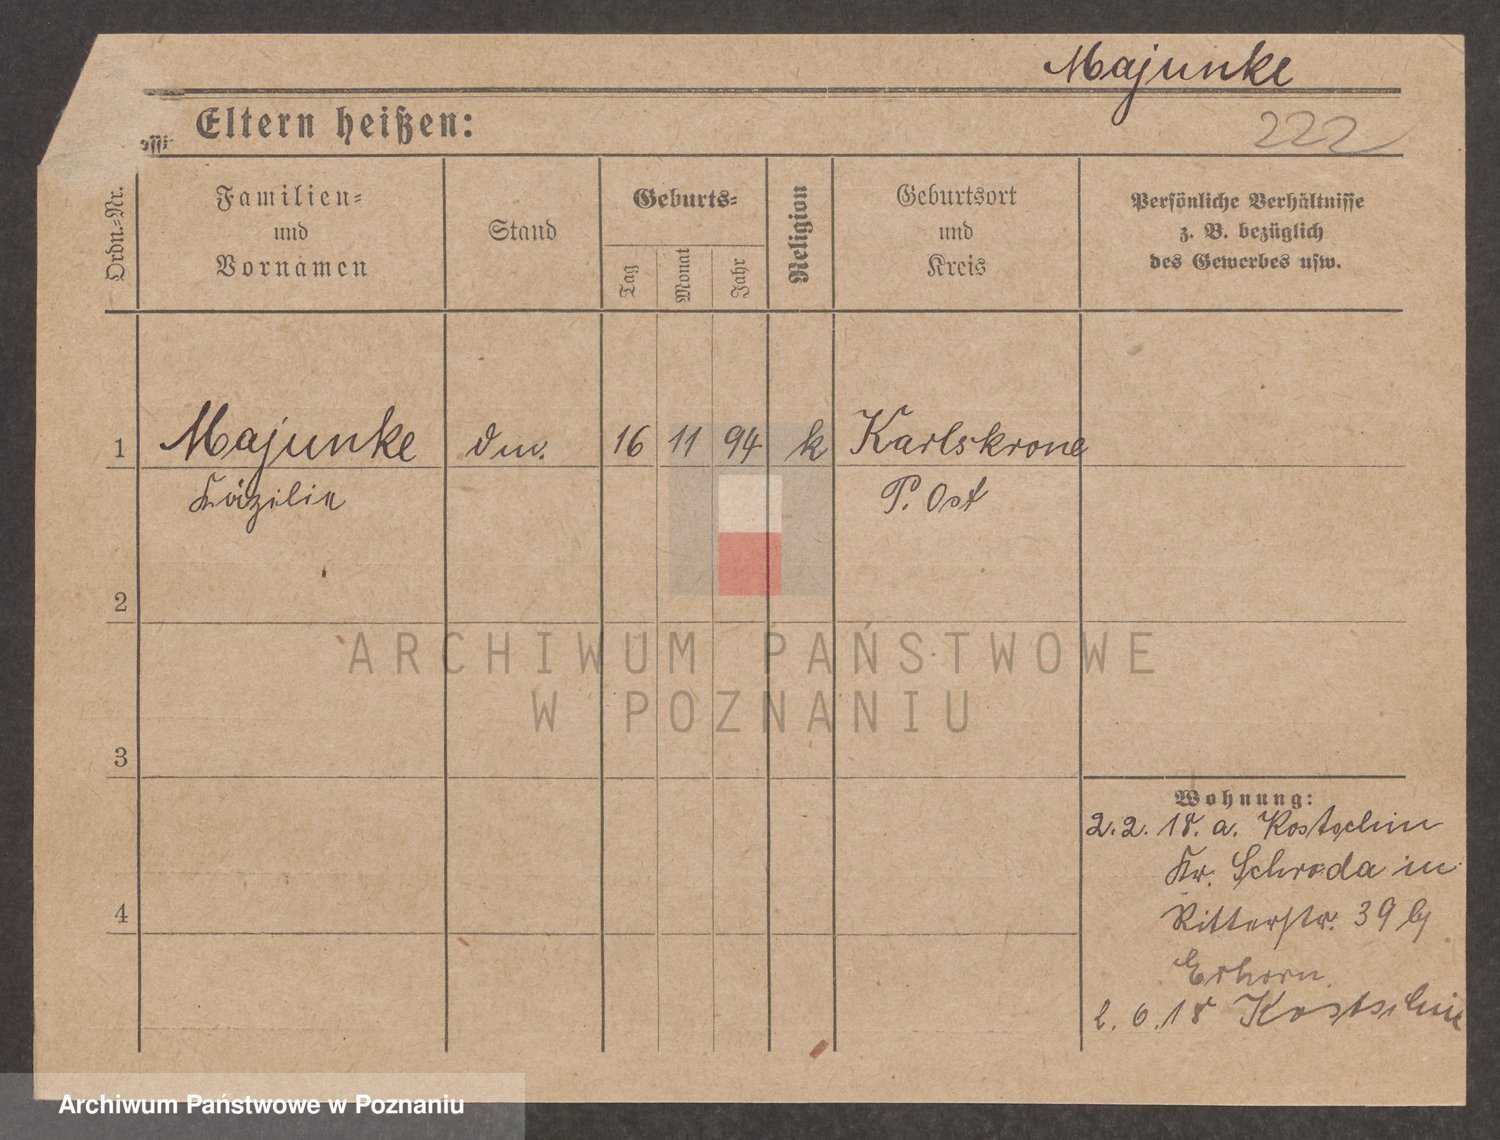 Majunke
Eltern heißen:
222
Ordn.-Nr.
Familien-
und
Vornamen
Stand
Geburts-
Tag
Monat
Jahr
Religion
Geburtsort
und
Kreis
Persönliche Verhältnisse
z. B. bezüglich
des Gewerbes usw.
1 Majunke 16 11 94 k Karlskrone
Käzilie P. Ost
2
ARCHIWUM PAŃSTWOWE
W POZNANIU
3
Wohnung:
2.2.18. a. Kostschin
Kr. Schroda in
4
Ritterstr. 39 b/
Erhorn
2.6.18 Kostschin
Archiwum Państwowe w Poznaniu